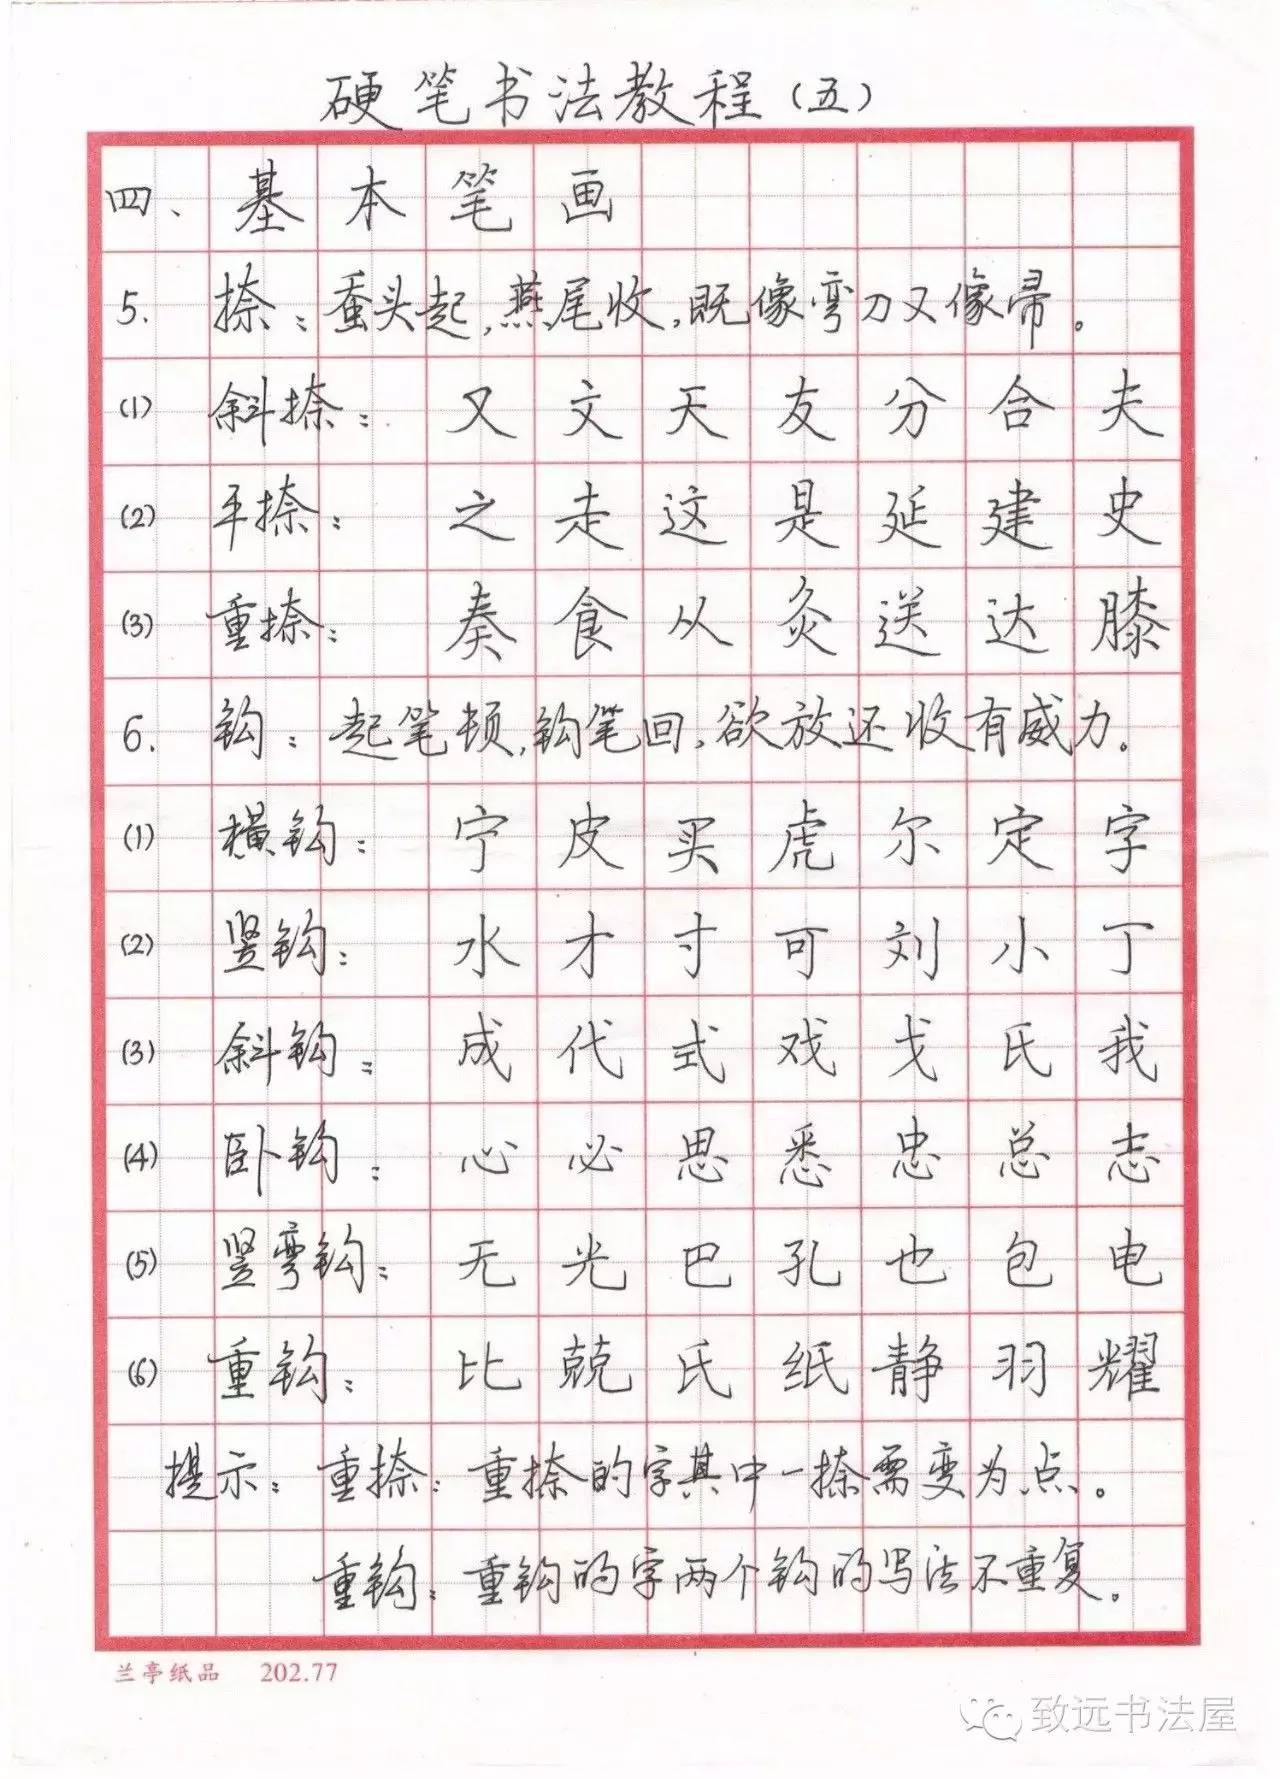 硬笔书法教程(五)
四、基本笔画
5. 捺:蚕头起,燕尾收,既像弯刀又像帚。
(1) 斜捺: 又文天友分合夫
(2) 平捺: 之走这是延建史
(3) 重捺: 奏食从灸送达膝
6. 钩:起笔顿,钩笔回,欲放还收有威力。
(1) 横钩: 宁皮买虎尔定字
(2) 竖钩: 水才寸可刘小丁
(3) 斜钩: 成代式戏戈氏我
(4) 卧钩: 心必思悉忠总志
(5) 竖弯钩: 无光巴孔也包电
(6) 重钩: 比兢氏纸静羽耀
提示:重捺:重捺的字其中一捺需变为点。
重钩:重钩的字两个钩的写法不重复。
兰亭纸品 202.77
致远书法屋